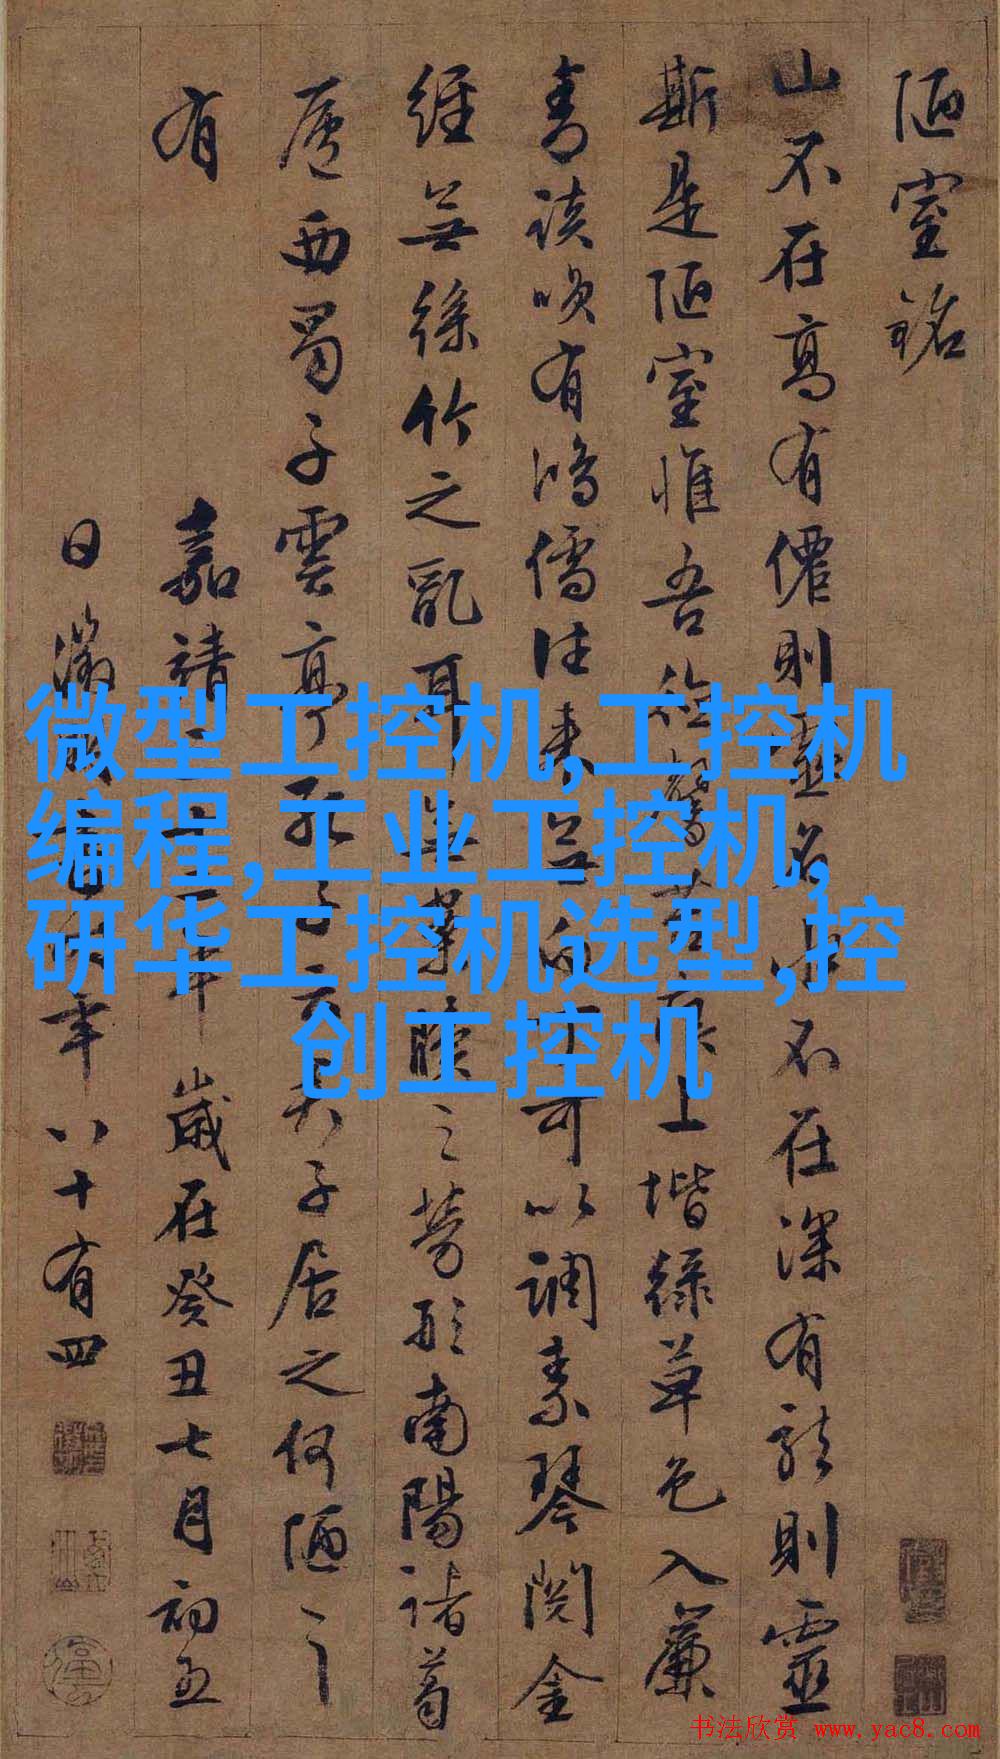 陋室銘
山不在高有僊則名水不在深有龍則靈
斯是陋室惟吾德馨苔痕上堦綠草色入簾
青談咲有鴻儒往來無白丁可以調素琴閱金
經無絲竹之亂耳無案牘之勞形南陽諸葛
廬西蜀子雲亭孔子云君子居之何陋之
有
嘉靖三十二年歲在癸丑七月初五
日徵明時年八十有四
微型工控机,工控机
编程,工业工控机,
研华工控机选型,控
创工控机
书法欣赏 www.yac8.com